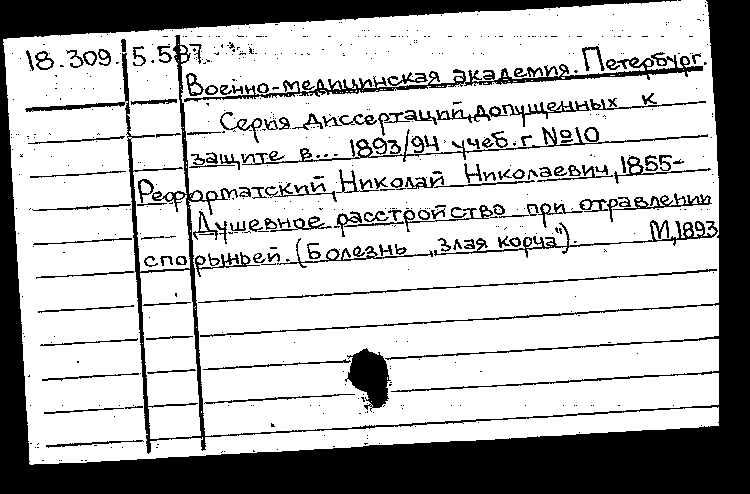 18.309. 5.587.
Военно-медицинская академия. Петербург.
Серия диссертаций, допущенных к
защите в... 1893/94 учеб. г. №10
Реформатский, Николай Николаевич, 1855-
Душевное расстройство при отравлении
спорыньей. (Болезнь „злая корча"). М, 1893